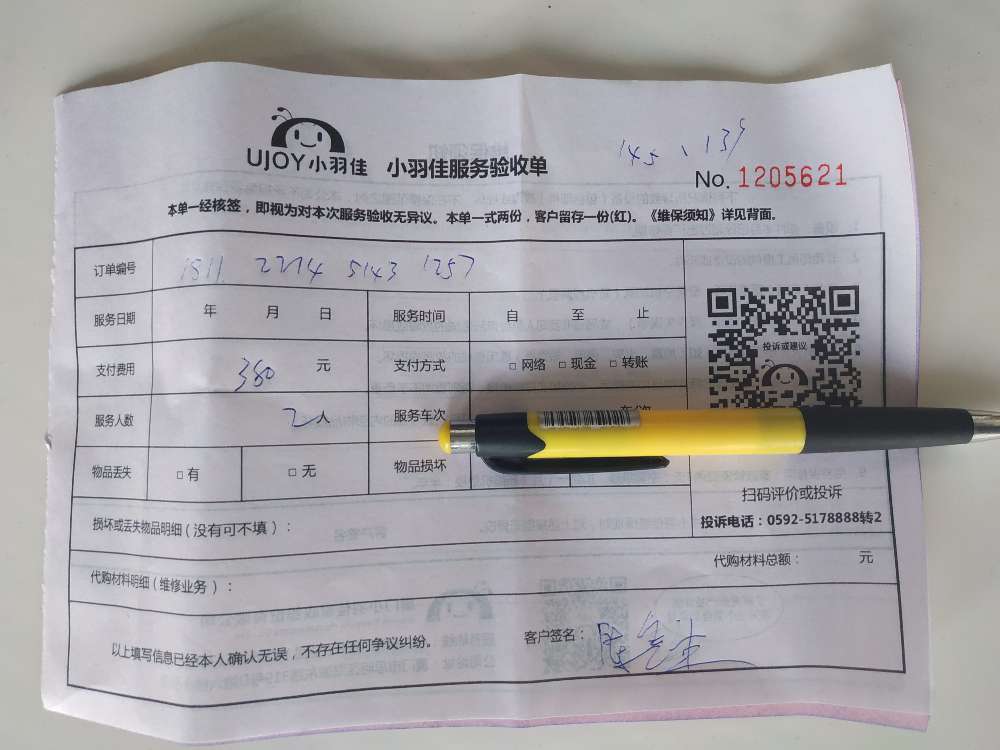 UJOY小羽佳 小羽佳服务验收单
145、139
No. 1205621
本单一经核签，即视为对本次服务验收无异议。本单一式两份，客户留存一份(红)。《维保须知》详见背面。
订单编号 1811 2214 5143 1257
服务日期 年 月 日 服务时间 自 至 止
支付费用 380 元 支付方式 □ 网络 □ 现金 □ 转账
投诉或建议
服务人数 2人 服务车次
物品丢失 □ 有 □ 无 物品损坏
扫码评价或投诉
投诉电话：0592-5178888转2
损坏或丢失物品明细（没有可不填）：
代购材料总额： 元
代购材料明细（维修业务）：
以上填写信息已经本人确认无误，不存在任何争议纠纷。 客户签名：